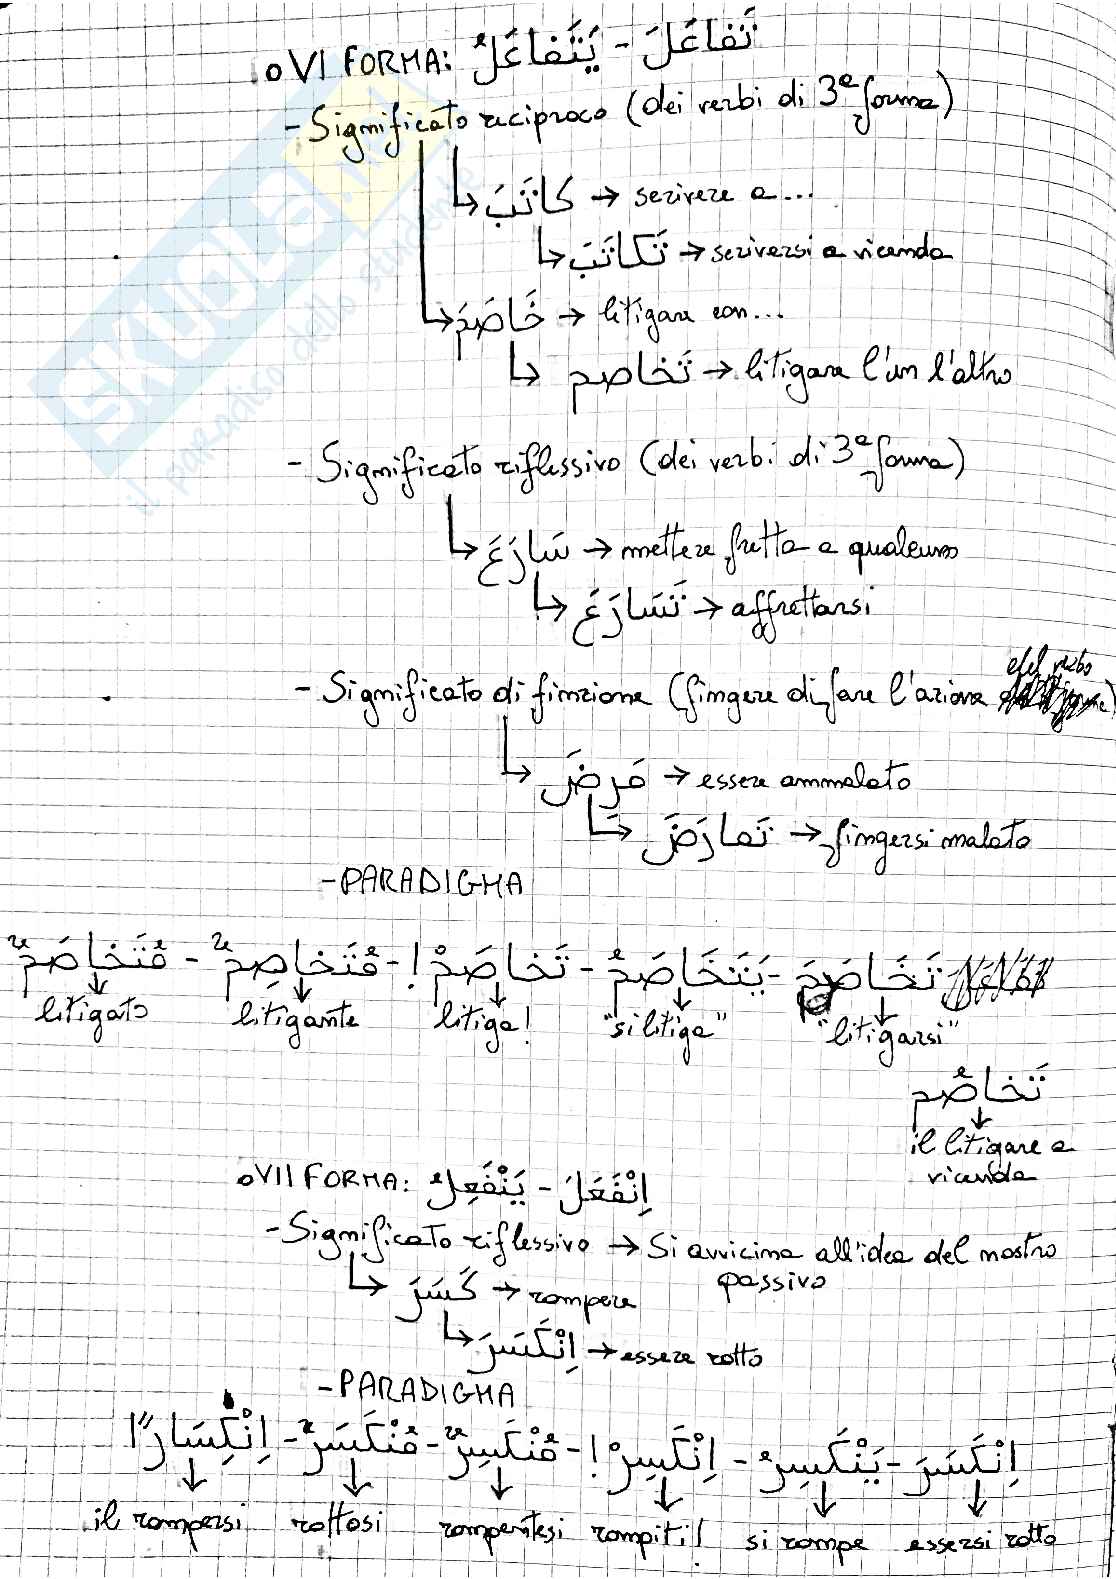 o VI FORMA: تَفاعَلَ - يَتَفاعَلُ
- Significato reciproco (dei verbi di 3ª forma)
↳ كاتَبَ → scrivere a...
↳ تَكاتَبَ → scriversi a vicenda
↳ خَاصَمَ → litigare con...
↳ تَخاصم → litigare l'un l'altro
- Significato riflessivo (dei verbi di 3ª forma)
↳ سَارَعَ → mettere fretta a qualcuno
↳ تَسَارَعَ → affrettarsi
- Significato di finzione (fingere di fare l'azione del verbo)
↳ مَرِضَ → essere ammalato
↳ تَمارَضَ → fingersi malato
- PARADIGMA
تَخَاصَمَ - يَتَخَاصَمُ - تَخاصَمْ! - مُتَخاصِمٌ - مُتَخاصَمٌ
litigato litigante litiga! "si litiga" "litigarsi"
تَخاصُم
il litigare a
vicenda
o VII FORMA: اِنْفَعَلَ - يَنْفَعِلُ
- Significato riflessivo → Si avvicina all'idea del nostro
passivo
↳ كَسَرَ → rompere
↳ اِنْكَسَرَ → essere rotto
- PARADIGMA
اِنْكَسَرَ - يَنْكَسِرُ - اِنْكَسِرْ! - مُنْكَسِرٌ - مُنْكَسَرٌ - اِنْكِسَارًا
il rompersi rottosi rompentesi rompiti! si rompe essersi rotto
SKUOLA.net
il paradiso dello studente